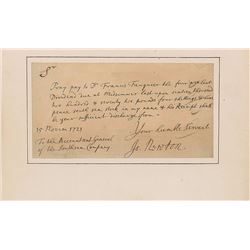 Sr
Pray pay to Dr Francis Fauquier the four half years
Dividend due at Midsummer last upon
two hundred & seventy two pounds four shillings &
South sea stock in my name & his Receipt shall
be your sufficient discharge from
15 Novem 1721
Your humble Servant
To the Accountant General
of the Southsea Company
Is. Newton